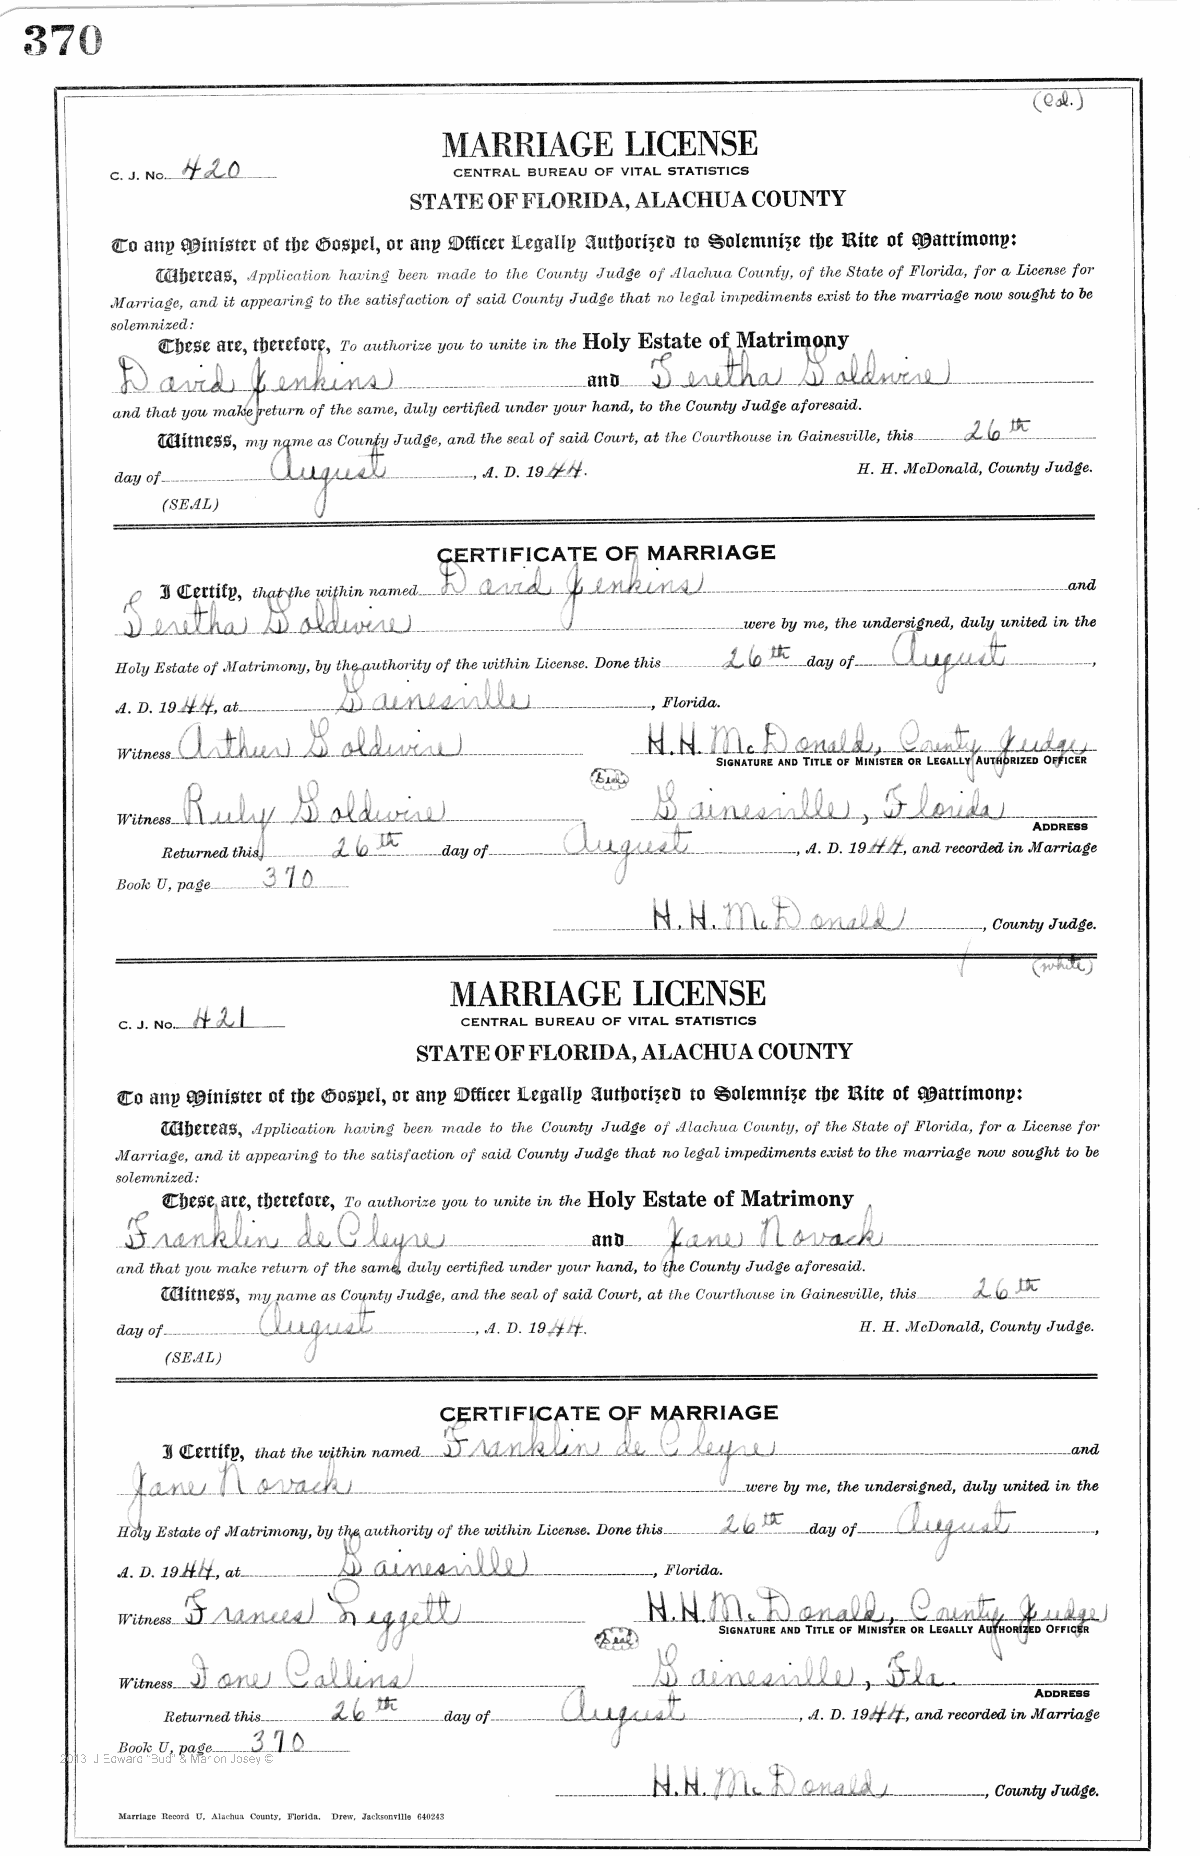 370
(Col.)
MARRIAGE LICENSE
C. J. No. 420
CENTRAL BUREAU OF VITAL STATISTICS
STATE OF FLORIDA, ALACHUA COUNTY
To any Minister of the Gospel, or any Officer Legally Authorized to Solemnize the Rite of Matrimony:
Whereas, Application having been made to the County Judge of Alachua County, of the State of Florida, for a License for
Marriage, and it appearing to the satisfaction of said County Judge that no legal impediments exist to the marriage now sought to be
solemnized:
These are, therefore, To authorize you to unite in the Holy Estate of Matrimony
David Jenkins and Teretha Goldwire
and that you make return of the same, duly certified under your hand, to the County Judge aforesaid.
Witness, my name as County Judge, and the seal of said Court, at the Courthouse in Gainesville, this 26th
day of August, A. D. 1944. H. H. McDonald, County Judge.
(SEAL)
CERTIFICATE OF MARRIAGE
I Certify, that the within named David Jenkins and
Teretha Goldwire were by me, the undersigned, duly united in the
Holy Estate of Matrimony, by the authority of the within License. Done this 26th day of August,
A. D. 1944, at Gainesville, Florida.
Witness Arthur Goldwire H. H. McDonald, County Judge
SIGNATURE AND TITLE OF MINISTER OR LEGALLY AUTHORIZED OFFICER
Seal
Witness Ruby Goldwire Gainesville, Florida
ADDRESS
Returned this 26th day of August, A. D. 1944, and recorded in Marriage
Book U, page 370
H. H. McDonald, County Judge.
(white)
MARRIAGE LICENSE
C. J. No. 421
CENTRAL BUREAU OF VITAL STATISTICS
STATE OF FLORIDA, ALACHUA COUNTY
To any Minister of the Gospel, or any Officer Legally Authorized to Solemnize the Rite of Matrimony:
Whereas, Application having been made to the County Judge of Alachua County, of the State of Florida, for a License for
Marriage, and it appearing to the satisfaction of said County Judge that no legal impediments exist to the marriage now sought to be
solemnized:
These are, therefore, To authorize you to unite in the Holy Estate of Matrimony
Franklin de Cleyre and Jane Novack
and that you make return of the same, duly certified under your hand, to the County Judge aforesaid.
Witness, my name as County Judge, and the seal of said Court, at the Courthouse in Gainesville, this 26th
day of August, A. D. 1944. H. H. McDonald, County Judge.
(SEAL)
CERTIFICATE OF MARRIAGE
I Certify, that the within named Franklin de Cleyre and
Jane Novack were by me, the undersigned, duly united in the
Holy Estate of Matrimony, by the authority of the within License. Done this 26th day of August,
A. D. 1944, at Gainesville, Florida.
Witness Frances Leggett H. H. McDonald, County Judge
SIGNATURE AND TITLE OF MINISTER OR LEGALLY AUTHORIZED OFFICER
Seal
Witness Ione Collins Gainesville, Fla.
ADDRESS
Returned this 26th day of August, A. D. 1944, and recorded in Marriage
Book U, page 370
2013 J Edward "Bud" & Marion Josey ©
H. H. McDonald, County Judge.
Marriage Record U, Alachua County, Florida. Drew, Jacksonville 640243